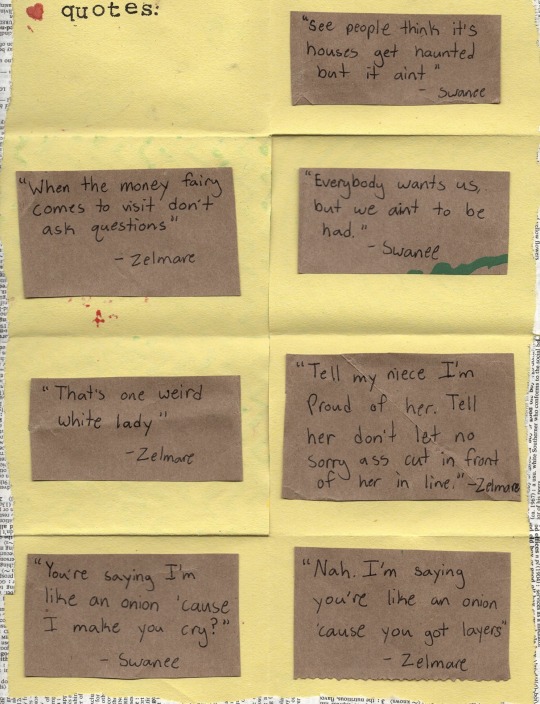 quotes:
"See people think it's
houses get haunted
but it aint"
- Swanee
"When the money fairy
comes to visit don't
ask questions"
- Zelmare
"Everybody wants us,
but we aint to be
had."
- Swanee
"That's one weird
white lady"
- Zelmare
"Tell my niece I'm
Proud of her. Tell
her don't let no
sorry ass cut in front
of her in line." - Zelmare
"You're saying I'm
like an onion 'cause
I make you cry?"
- Swanee
"Nah. I'm saying
you're like an onion
'cause you got layers"
- Zelmare